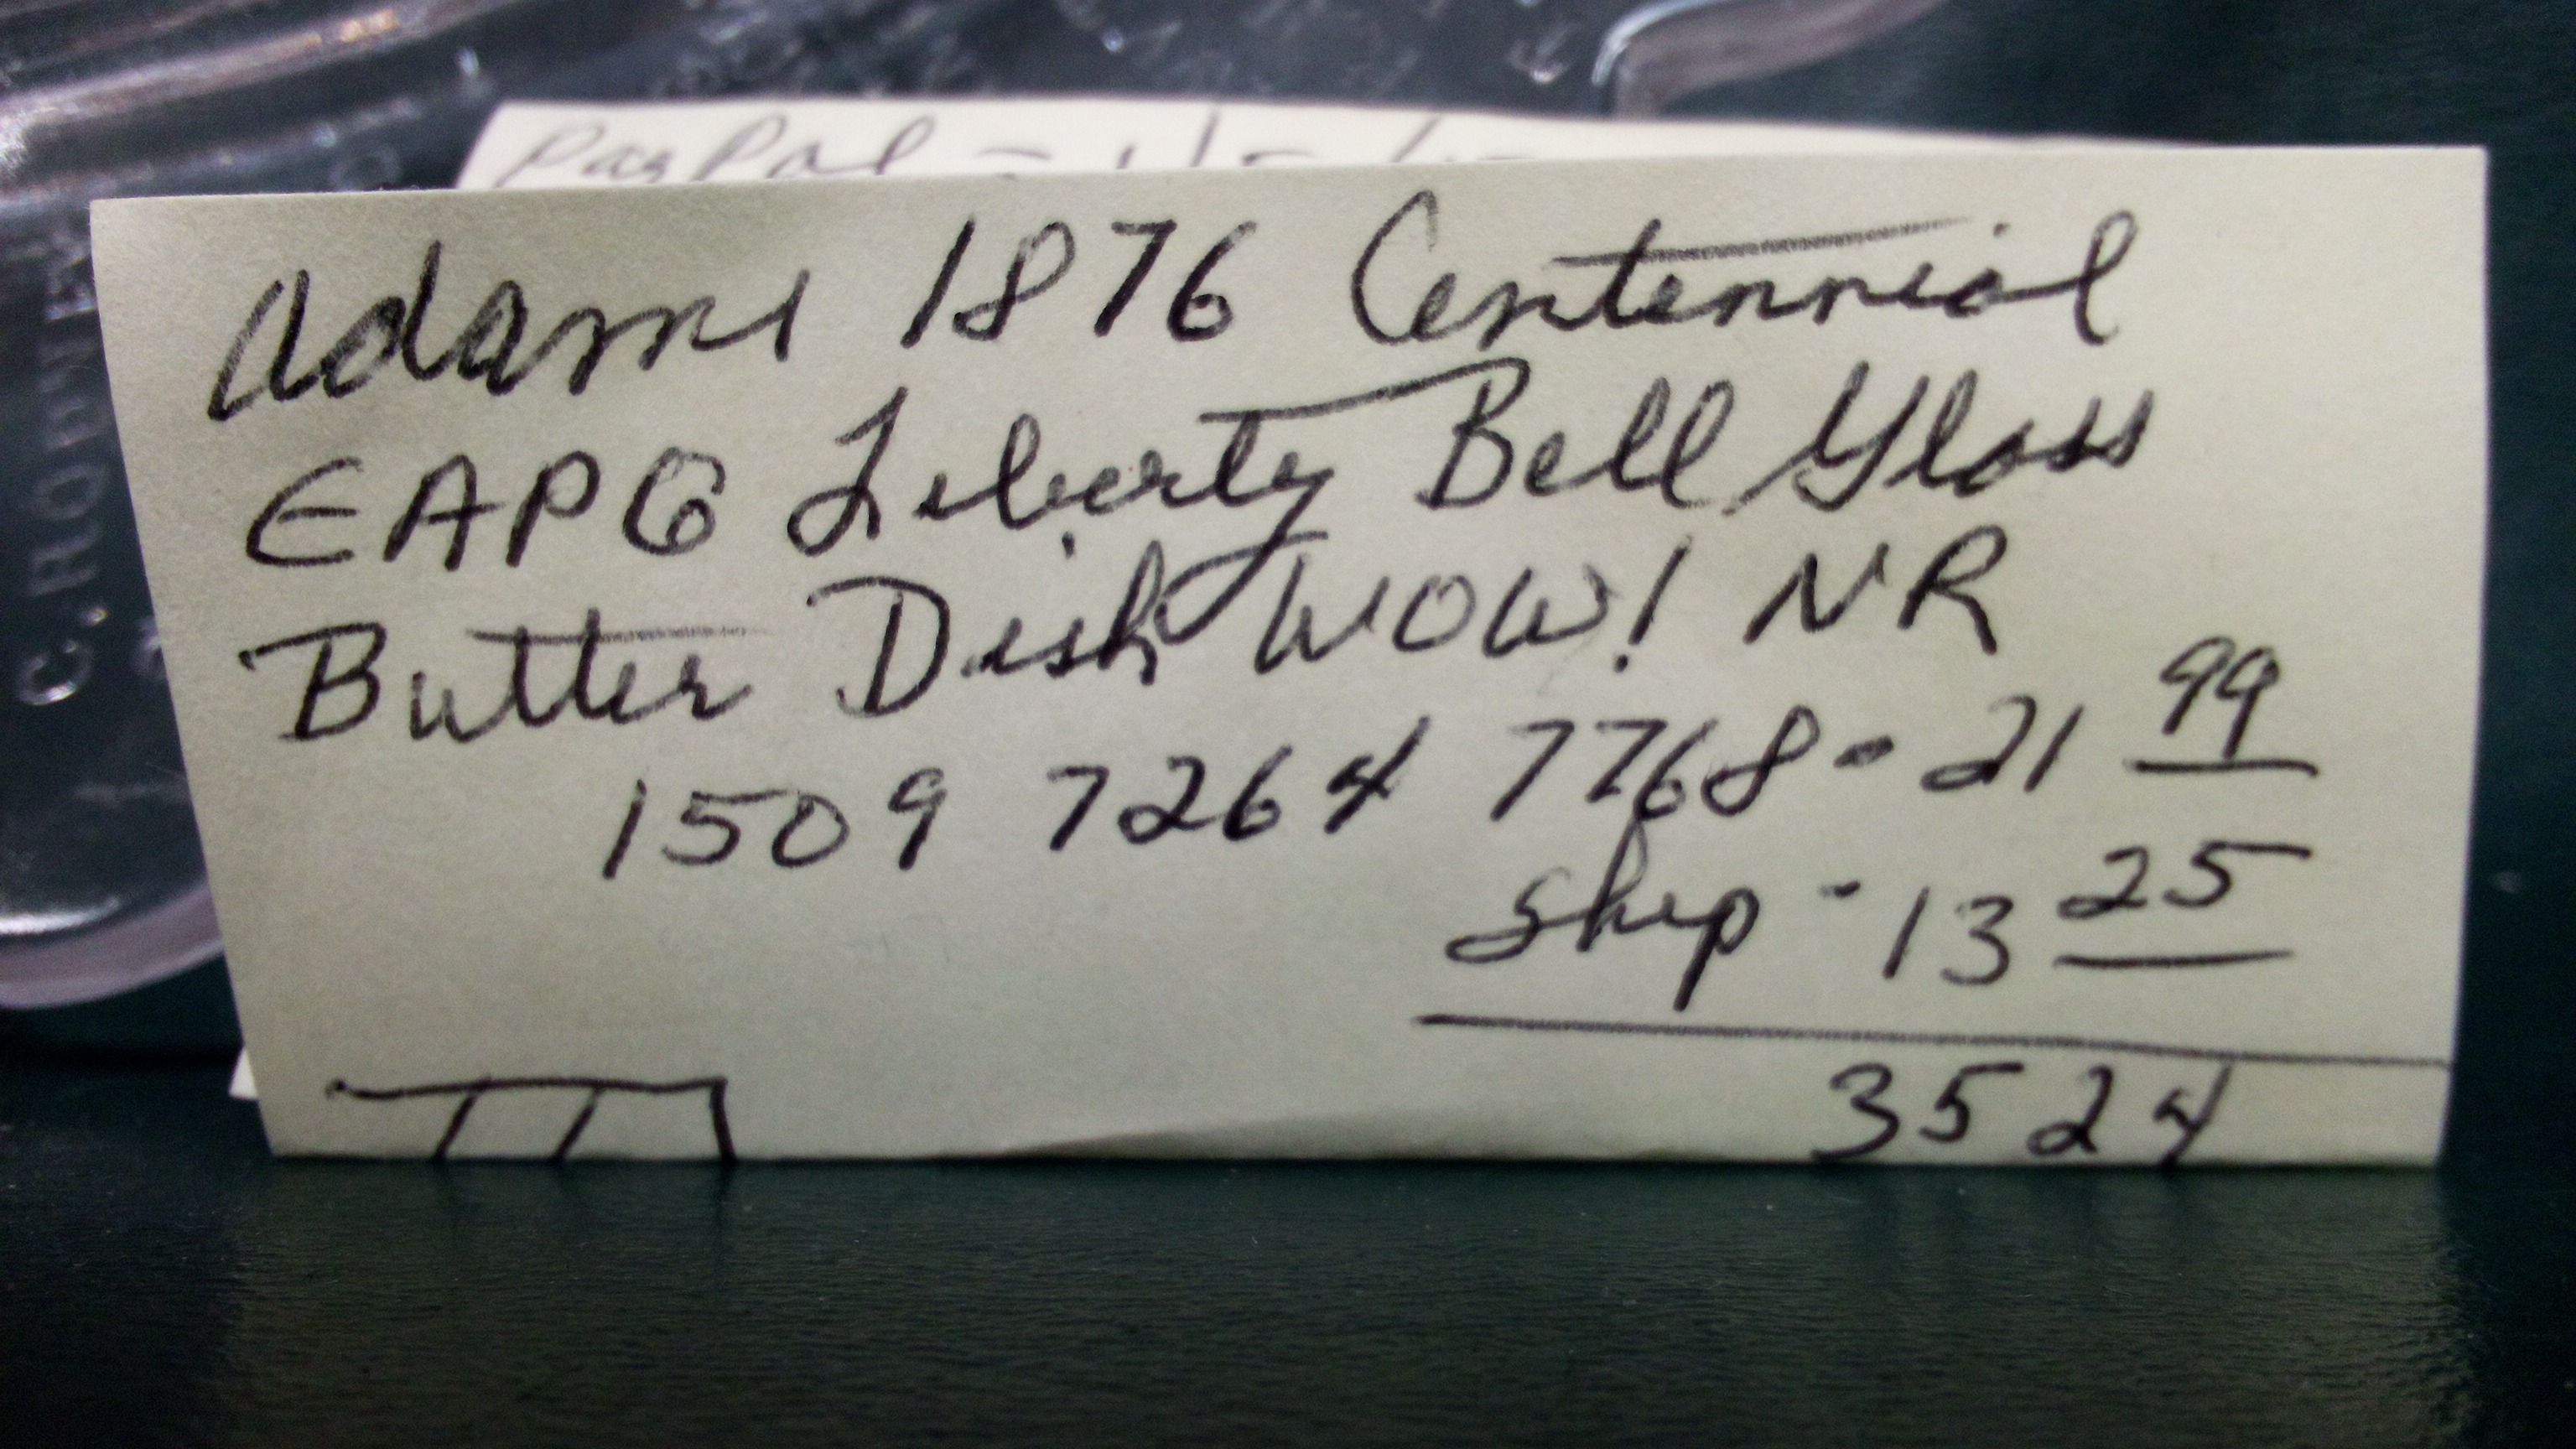 PayPal -
Adams 1876 Centennial
EAPG Liberty Bell Glass
Butter Dish WOW! NR
1509 7264 7768 - 21 99
Ship - 13 25
35 24
C. ROPNE